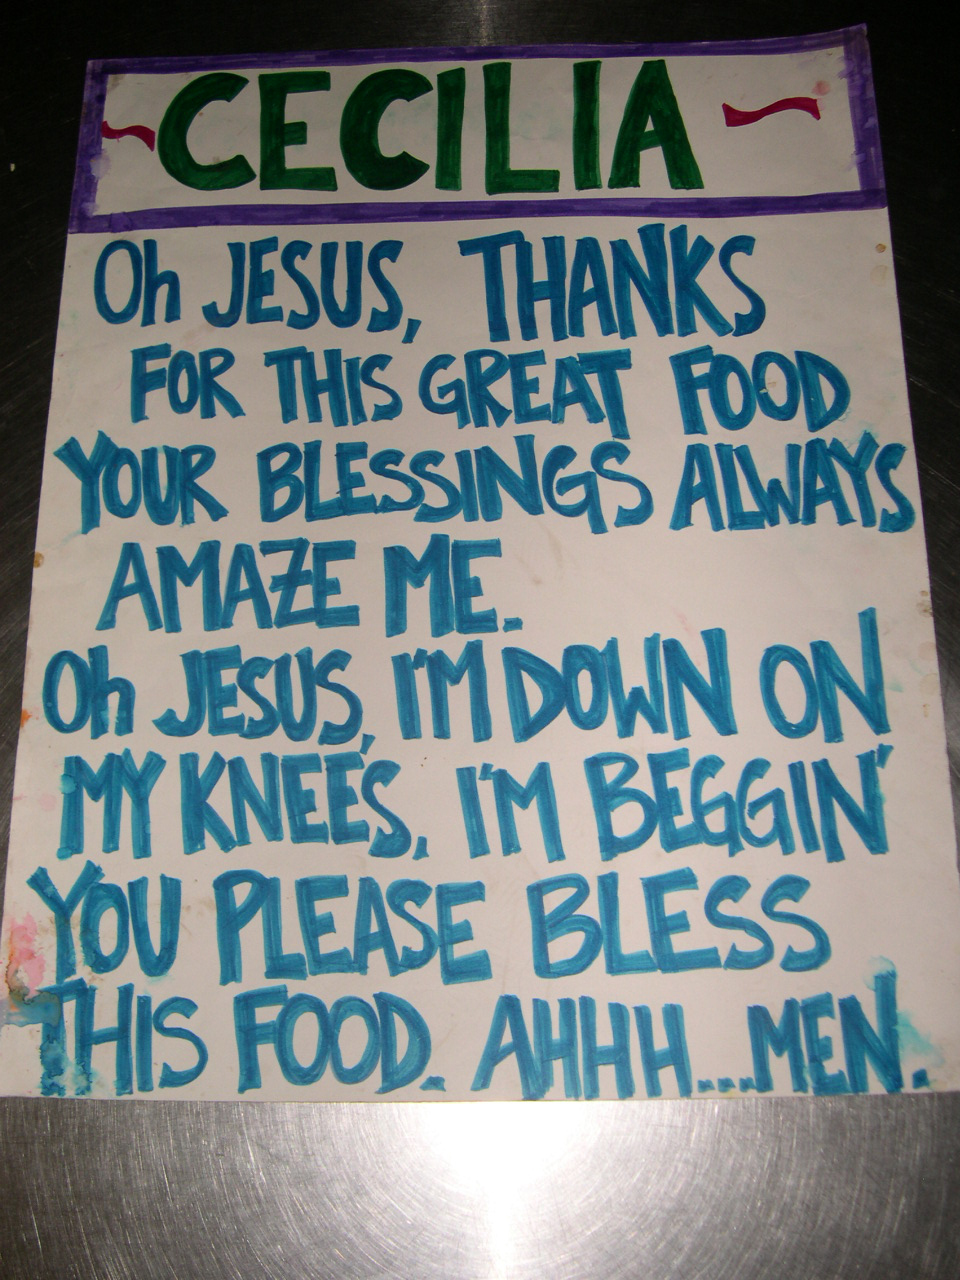 ~ CECILIA ~
Oh JESUS, THANKS
FOR THIS GREAT FOOD
YOUR BLESSINGS ALWAYS
AMAZE ME.
Oh JESUS, I'M DOWN ON
MY KNEES, I'M BEGGIN'
YOU PLEASE BLESS
THIS FOOD. AHHH....MEN.